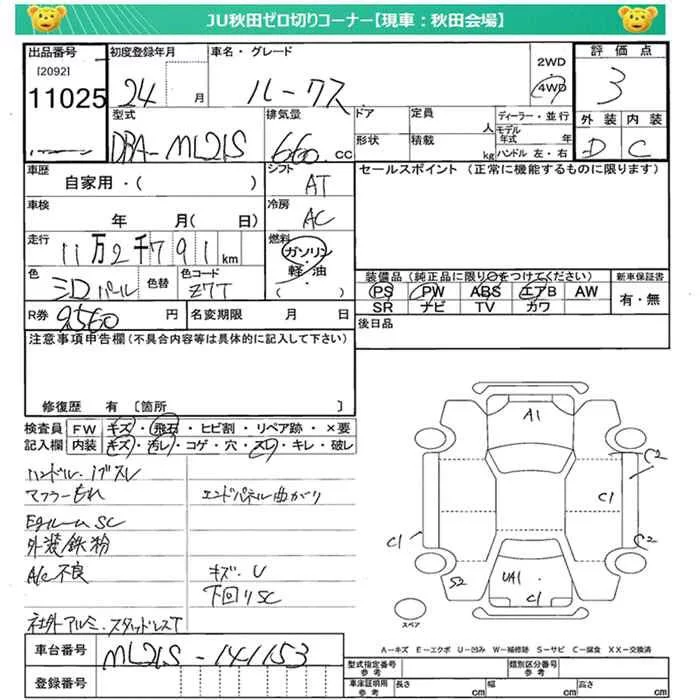 JU秋田ゼロ切りコーナー【現車：秋田会場】
出品番号 初度登録年月 車名・グレード 2WD 4WD 評価点
[2092]
11025 24 月 ルークス 3
型式 排気量 ドア 定員 人 ディーラー・並行 外装 内装
DBA-ML21S 660 cc 形状 積載 kg モデル年式 年 ハンドル 左・右 D C
車歴 シフト セールスポイント（正常に機能するものに限ります）
自家用・（ ） AT
車検 冷房
年 月（ 日） AC
走行 燃料
11万2千791 km ガソリン
軽・油
（ ）
色 色替 色コード 装備品（純正品に限り○をつけてください） 新車保証書
ミロパール Z7T PS PW ABS エアB AW 有・無
SR ナビ TV カワ
R券 9560 円 名変期限 月 日 後日品
注意事項申告欄（不具合内容等は具体的に記入して下さい）
修復歴 有 [箇所 ]
検査員 FW キズ・飛石・ヒビ割・リペア跡・×要
記入欄 内装 キズ・汚レ・コゲ・穴・スレ・キレ・破レ
ハンドル・
マフラーもれ エンドパネル曲がり
Egルーム SC
外装鉄粉
A/C不良 キズ・U
下回りSC
社外アルミ・スタッドレスT
A1
C2
C1
C1 C2
S2 UA1
C1
スペア
A－キズ E－エクボ U－凹み W－補修跡 S－サビ C－腐食 XX－交換済
車台番号 ML21S-141153
登録番号
型式指定番号 参考 類別区分番号 参考
車庫証明用 参考 長さ cm 幅 cm 高さ cm